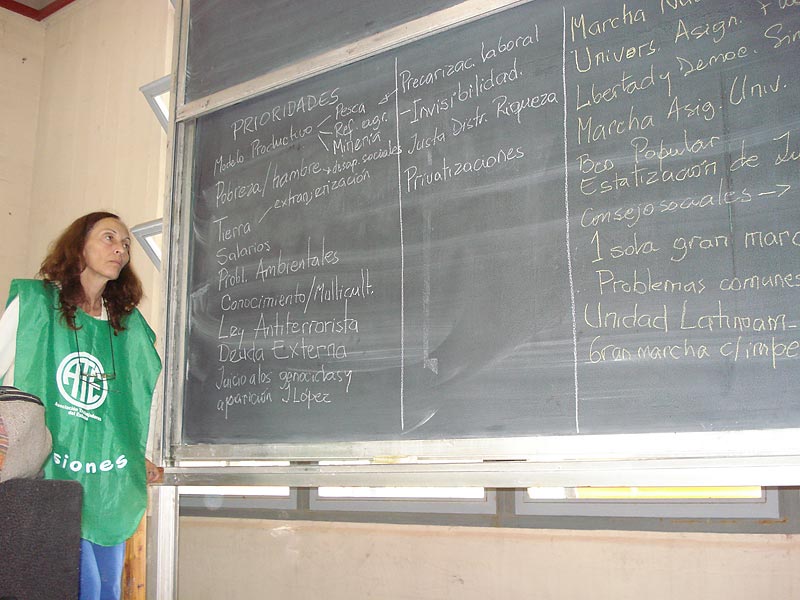 PRIORIDADES
Modelo Productivo
Pesca
Ref. agr.
Minería
Pobreza/hambre → desap. sociales
Tierra
extranjerización
Salarios
Probl. Ambientales
Conocimiento/Multicult.
Ley Antiterrorista
Deuda Externa
Juicio a los genocidas y
aparición J López
→ Precarizac. laboral
- Invisibilidad.
Justa Distr. Riqueza
Privatizaciones
Marcha
Univers. Asign.
Libertad y Democ. Sin
Marcha Asig. Univ.
Bco Popular
Estatización de
Consejo sociales →
1 sola gran marc
Problemas comunes
Unidad Latinoam-
Gran marcha c/impe
ATE
Asociación Trabajadores
del Estado
siones